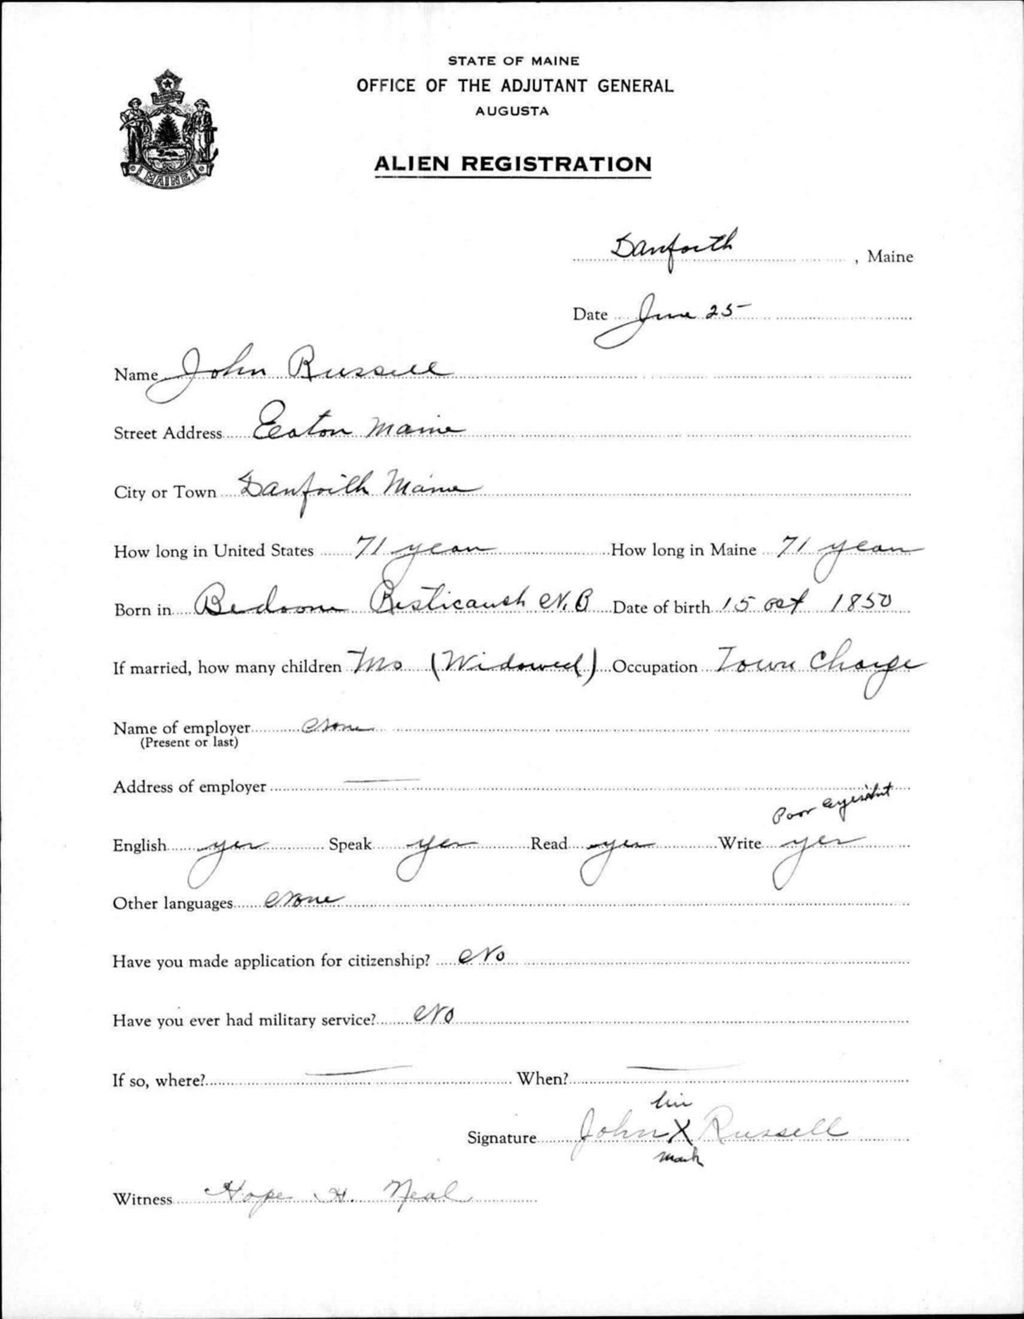 STATE OF MAINE
OFFICE OF THE ADJUTANT GENERAL
AUGUSTA
ALIEN REGISTRATION
MAINE
Danforth, Maine
Date June 25
Name John Russell
Street Address Eaton Maine
City or Town Danforth Maine
How long in United States 71 years How long in Maine 71 years
Born in N.B Date of birth 15 Oct 1850
If married, how many children No (Widowed) Occupation Town Charge
Name of employer None
(Present or last)
Address of employer —
Poor Eyesight
English yes Speak yes Read yes Write yes
Other languages None
Have you made application for citizenship? No
Have you ever had military service? No
If so, where? — When? —
his
Signature John X Russell
mark
Witness Hope H. Neal